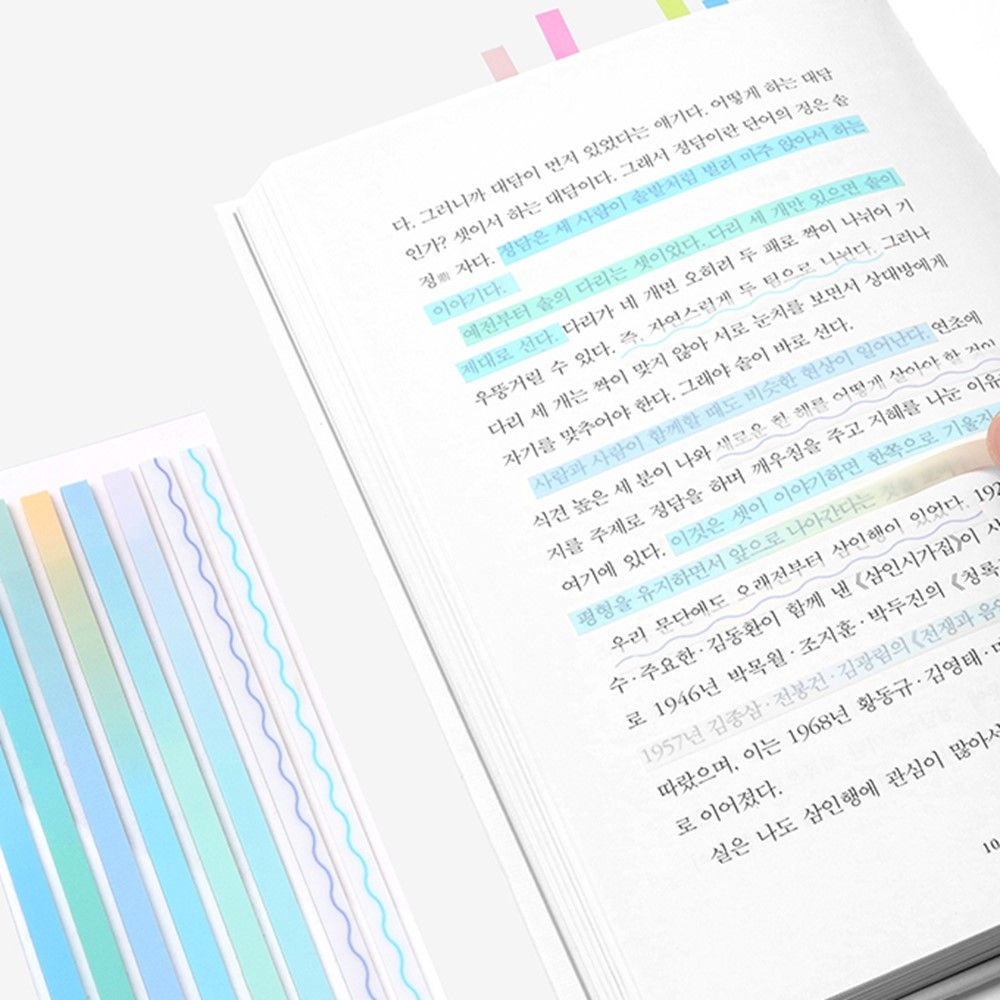 다. 그러니까 대담이 먼저 있었다는 얘기다. 어떻게 하는 대담
인가? 셋이서 하는 대담이다. 그래서 정담이란 단어의 정은 솥
정鼎 자다. 정담은 세 사람이 솥발처럼 벌려 마주 앉아서 하는
이야기다.
예전부터 솥의 다리는 셋이었다. 다리 세 개만 있으면 솥이
제대로 선다. 다리가 네 개면 오히려 두 패로 짝이 나뉘어 기
우뚱거릴 수 있다. 즉, 자연스럽게 두 팀으로 나뉜다. 그러나
다리 세 개는 짝이 맞지 않아 서로 눈치를 보면서 상대방에게
자기를 맞추어야 한다. 그래야 솥이 바로 선다.
사람과 사람이 함께할 때도 비슷한 현상이 일어난다. 연초에
식견 높은 세 분이 나와 새로운 한 해를 어떻게 살아야 할 것이
지를 주제로 정담을 하며 깨우침을 주고 지혜를 나눈 이유
여기에 있다. 이것은 셋이 이야기하면 한쪽으로 기울지
평형을 유지하면서 앞으로 나아간다는 것을
우리 문단에도 오래전부터 삼인행이 있었다. 192
수·주요한·김동환이 함께 낸 《삼인시가집》이
로 1946년 박목원·조지훈·박두진의 《청록
1957년 김종삼·전봉건·김광림의 《전쟁과 음
따랐으며, 이는 1968년 황동규·김영태·
로 이어졌다.
실은 나도 삼인행에 관심이 많아서
10